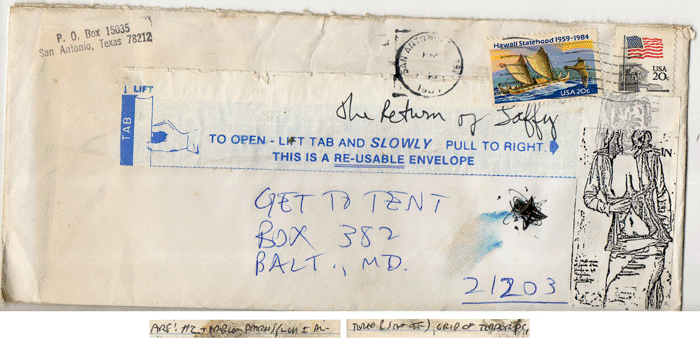 P. O. Box 15035
San Antonio, Texas 78212
SAN ANTONIO
PM
Hawaii Statehood 1959-1984
USA 20c
USA
20c
LIFT
TAB
The Return of Laffy
TO OPEN - LIFT TAB AND SLOWLY PULL TO RIGHT.
THIS IS A RE-USABLE ENVELOPE
GET TO TENT
BOX 382
BALT., MD.
21203
GRID OF TERROR